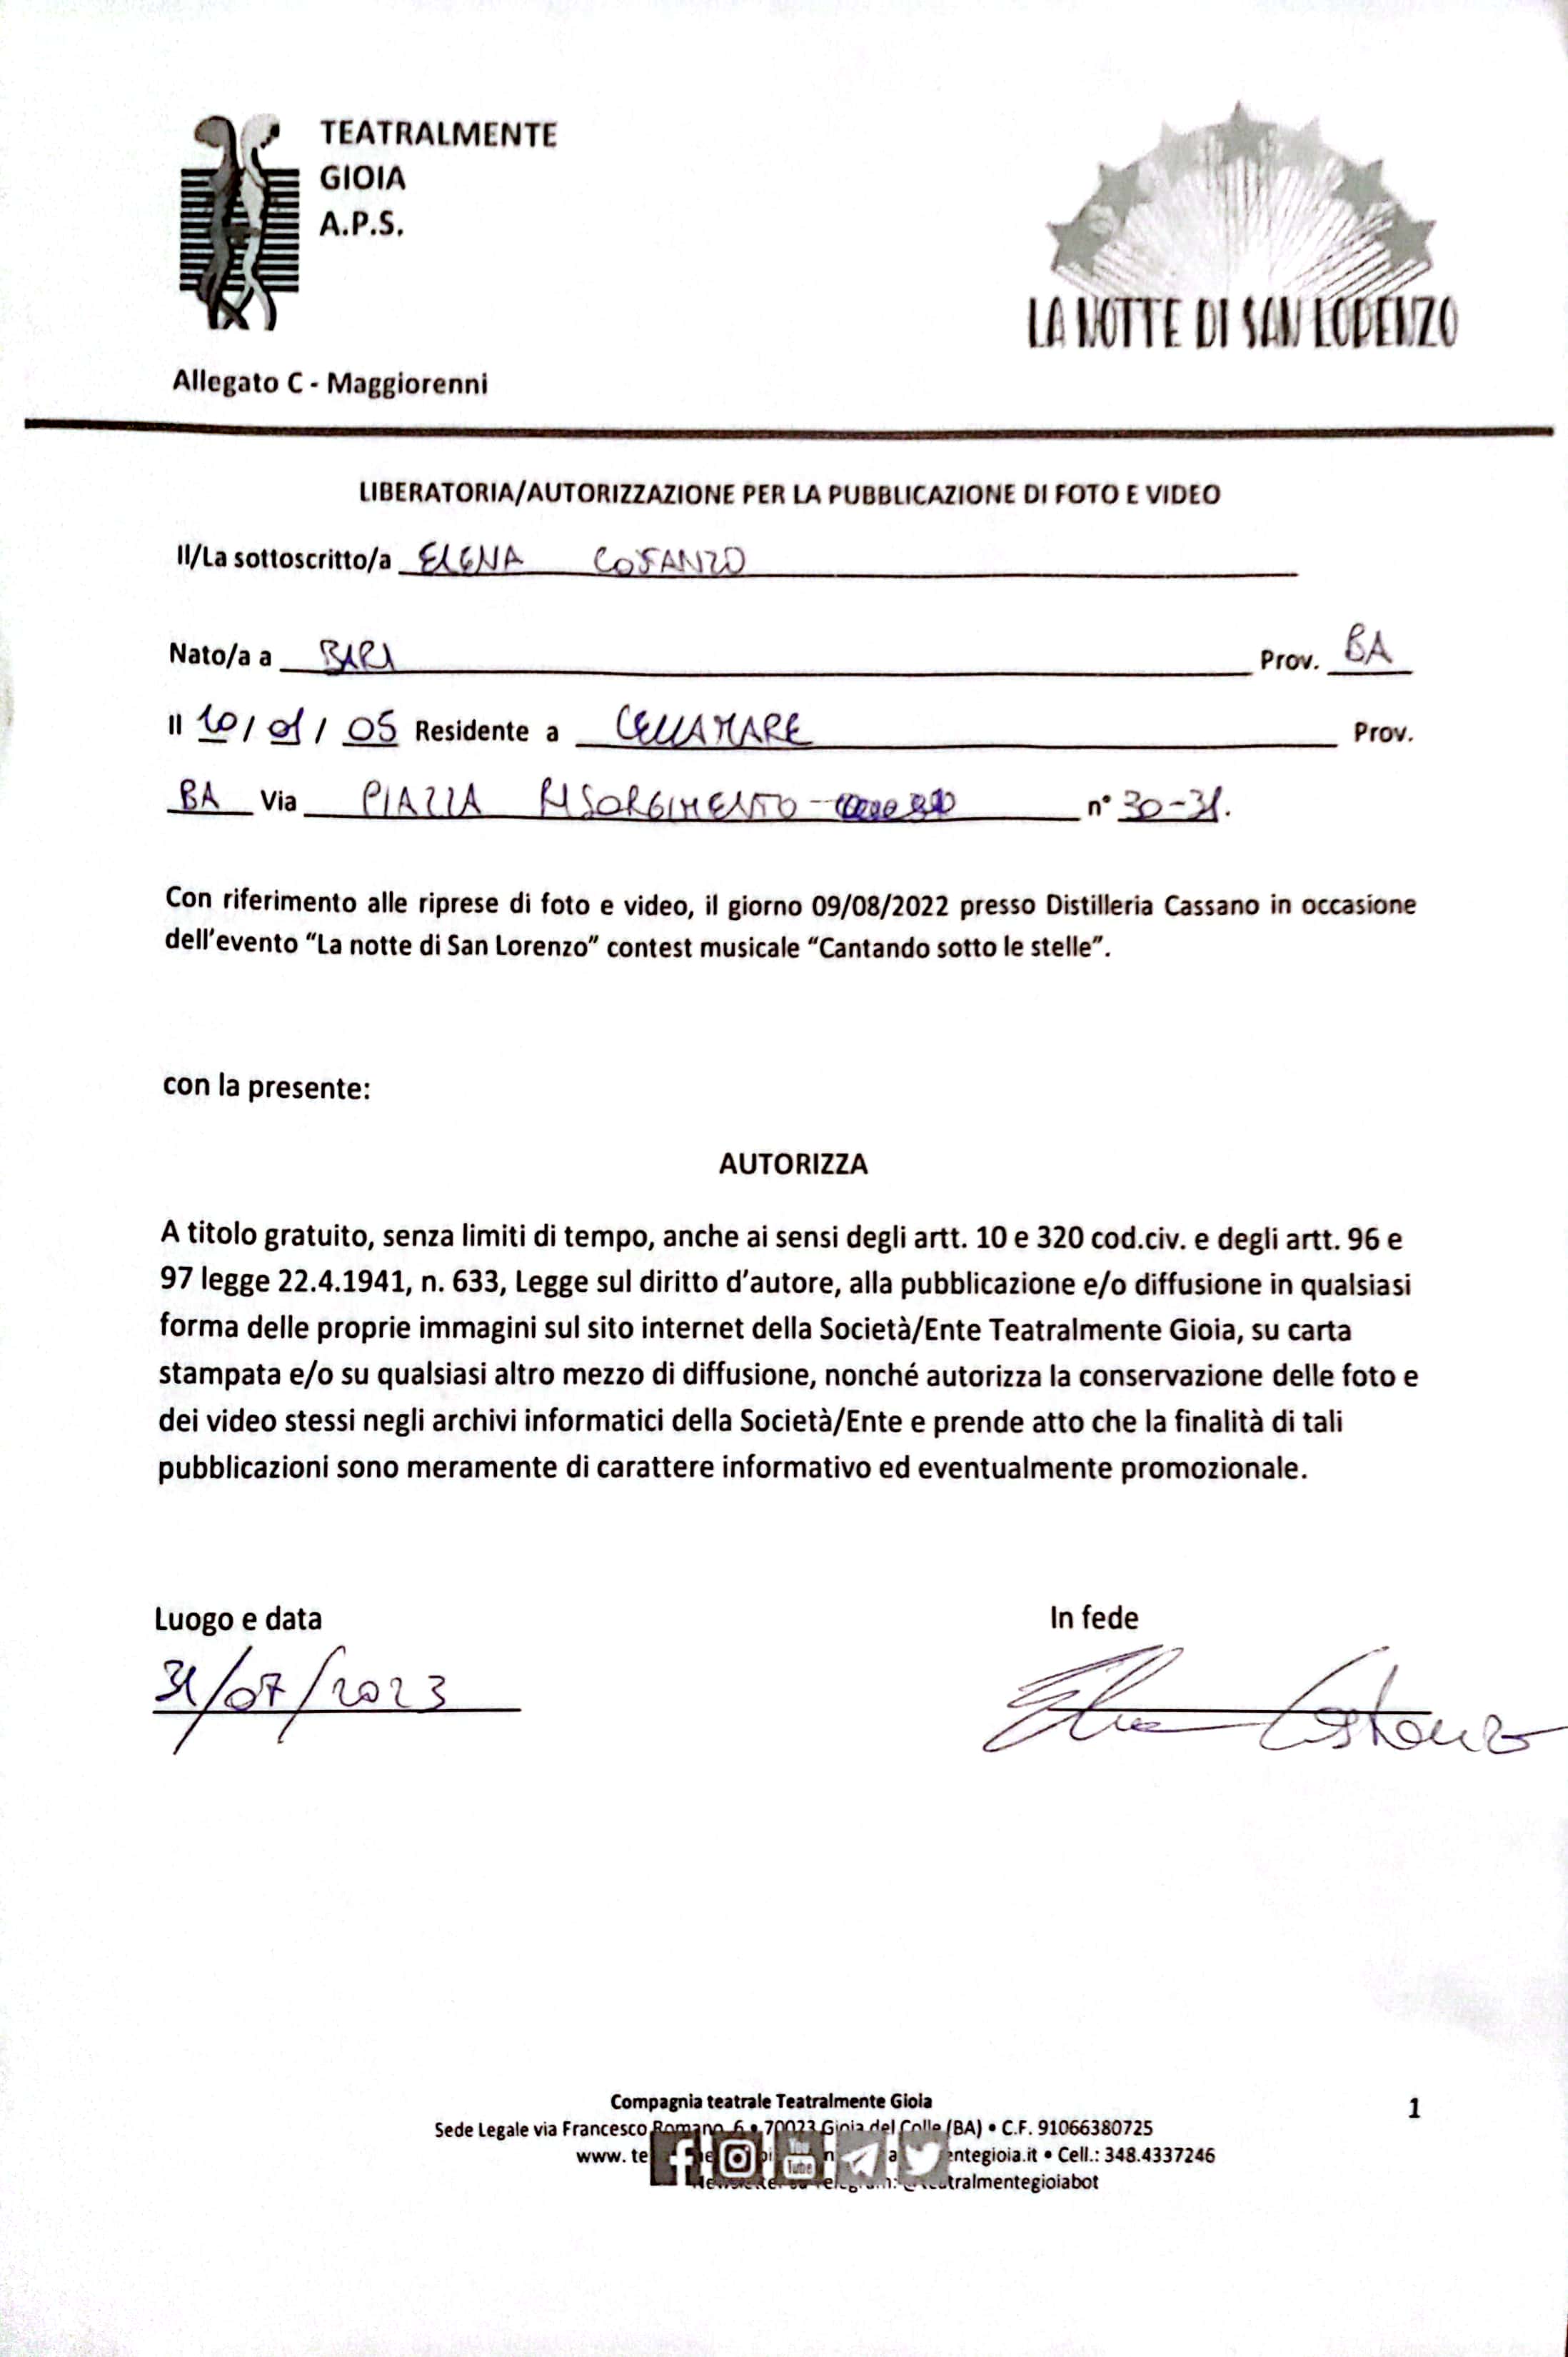 TEATRALMENTE
GIOIA
A.P.S.
LA NOTTE DI SAN LORENZO
Allegato C - Maggiorenni
LIBERATORIA/AUTORIZZAZIONE PER LA PUBBLICAZIONE DI FOTO E VIDEO
Il/La sottoscritto/a ELENA COSTANZO
Nato/a a BARI Prov. BA
Il 10/01/05 Residente a CELLAMARE Prov.
BA Via PIAZZA RISORGIMENTO - n° 30-31.
Con riferimento alle riprese di foto e video, il giorno 09/08/2022 presso Distilleria Cassano in occasione
dell'evento “La notte di San Lorenzo” contest musicale “Cantando sotto le stelle”.
con la presente:
AUTORIZZA
A titolo gratuito, senza limiti di tempo, anche ai sensi degli artt. 10 e 320 cod.civ. e degli artt. 96 e
97 legge 22.4.1941, n. 633, Legge sul diritto d'autore, alla pubblicazione e/o diffusione in qualsiasi
forma delle proprie immagini sul sito internet della Società/Ente Teatralmente Gioia, su carta
stampata e/o su qualsiasi altro mezzo di diffusione, nonché autorizza la conservazione delle foto e
dei video stessi negli archivi informatici della Società/Ente e prende atto che la finalità di tali
pubblicazioni sono meramente di carattere informativo ed eventualmente promozionale.
Luogo e data In fede
31/07/2023 Elena Costanzo
Compagnia teatrale Teatralmente Gioia 1
Sede Legale via Francesco Romano, 6 • 70023 Gioia del Colle (BA) • C.F. 91066380725
www. te entegioia.it • Cell.: 348.4337246
You Tube
tralmentegioiabot